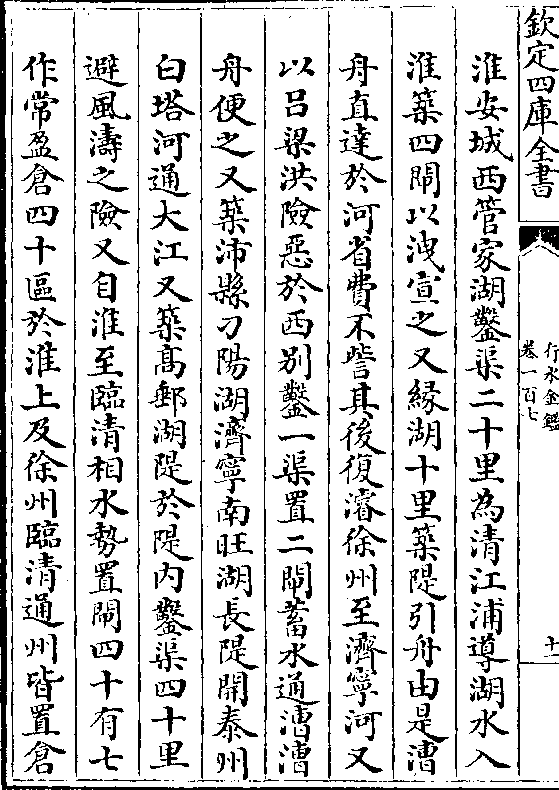 欽定四庫全書
行水金鑑
卷一百七
十一
淮安城西管家湖鑿渠二十里為清江浦導湖水入
淮築四閘以洩宣之又緣湖十里築隄引舟由是漕
舟直達於河省費不訾其後復濬徐州至濟寧河又
以吕梁洪險惡於西别鑿一渠置二閘蓄水通漕漕
舟便之又築沛縣刁陽湖濟寧南旺湖長隄開泰州
白塔河通大江又築高郵湖隄於隄内鑿渠四十里
避風濤之險又自淮至臨清相水勢置閘四十有七
作常盈倉四十區於淮上及徐州臨清通州皆置倉